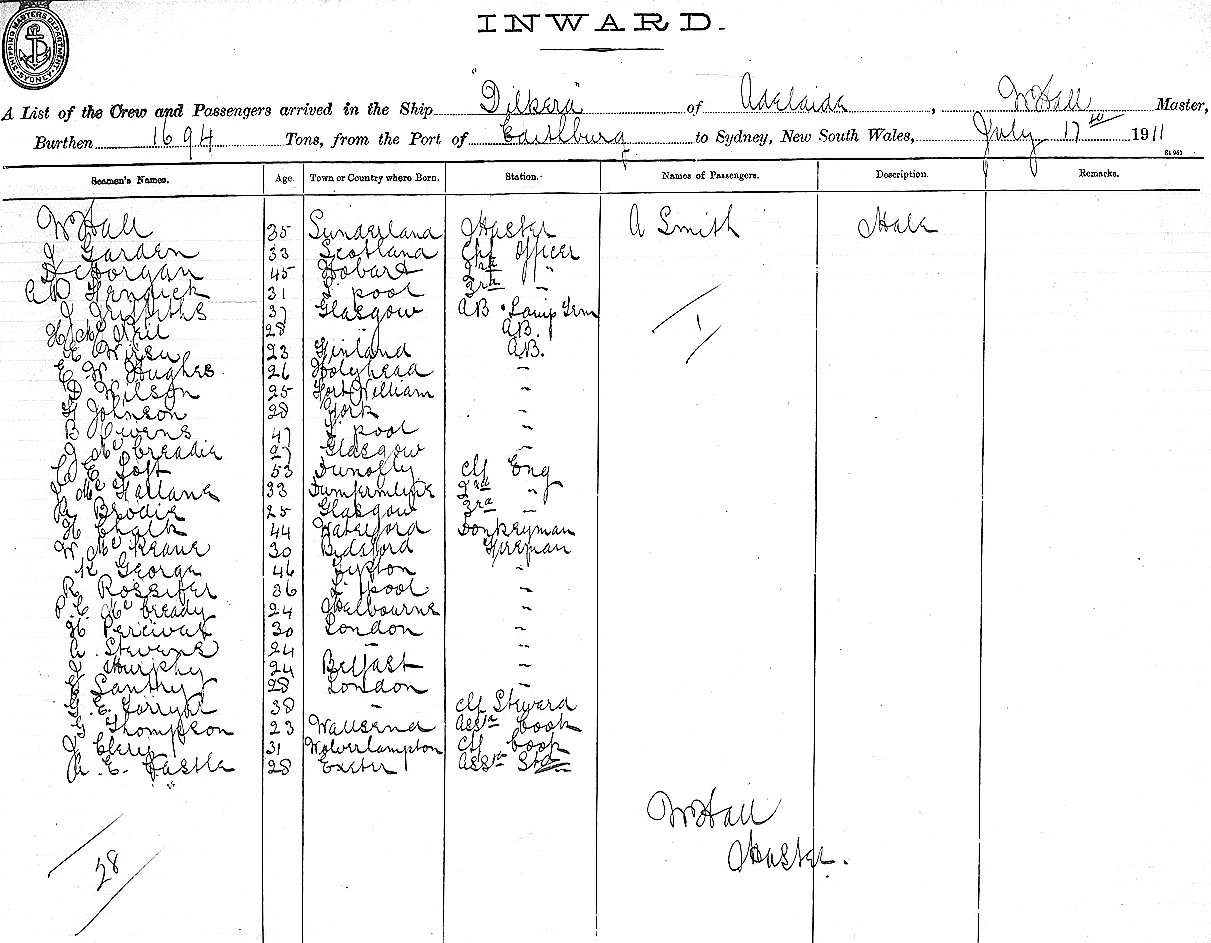 INWARD.
A List of the Crew and Passengers arrived in the Ship "Dilkera" of Adelaide, W Hall Master,
Burthen 1694 Tons, from the Port of to Sydney, New South Wales, July 17th 1911
Seamen's Names. Age. Town or Country where Born. Station. Names of Passengers. Description. Remarks.
W Hall 35 Sunderland Master A Smith Male
J Garden 33 Scotland Chf Officer
Morgan 45 Hobart 2nd "
31 L'pool 3rd "
J Griffiths 37 Glasgow AB & Lamp Trm
Mc Neil 28 " AB.
23 Finland AB.
W Hughes 26 Holyhead "
D Wilson 25 Fort William "
Johnson 28 York "
B Owens 47 L'pool "
J Mc Creadie 27 Glasgow "
E Loft 53 Dunolly Chf Eng
Mc Lellane 33 Dumfermline 2nd "
Brodie 25 Glasgow 3rd "
H Chalk 44 Waterford Donkeyman
W Mc Keane 30 Bideford Fireman
K George 46 Lipton "
R Rossiter 36 L'pool "
Mc Cready 24 Melbourne "
H Percival 30 London "
A Stevens 24 " "
Murphy 24 Belfast "
Lanthry 28 London "
E 38 " Chf Steward
Thompson 23 Wallsend Asst Cook
Clery 31 Wolverhampton Chf Cook
A. E. Eastle 28 Exeter Asst Std
1
W Hall
Master.
28